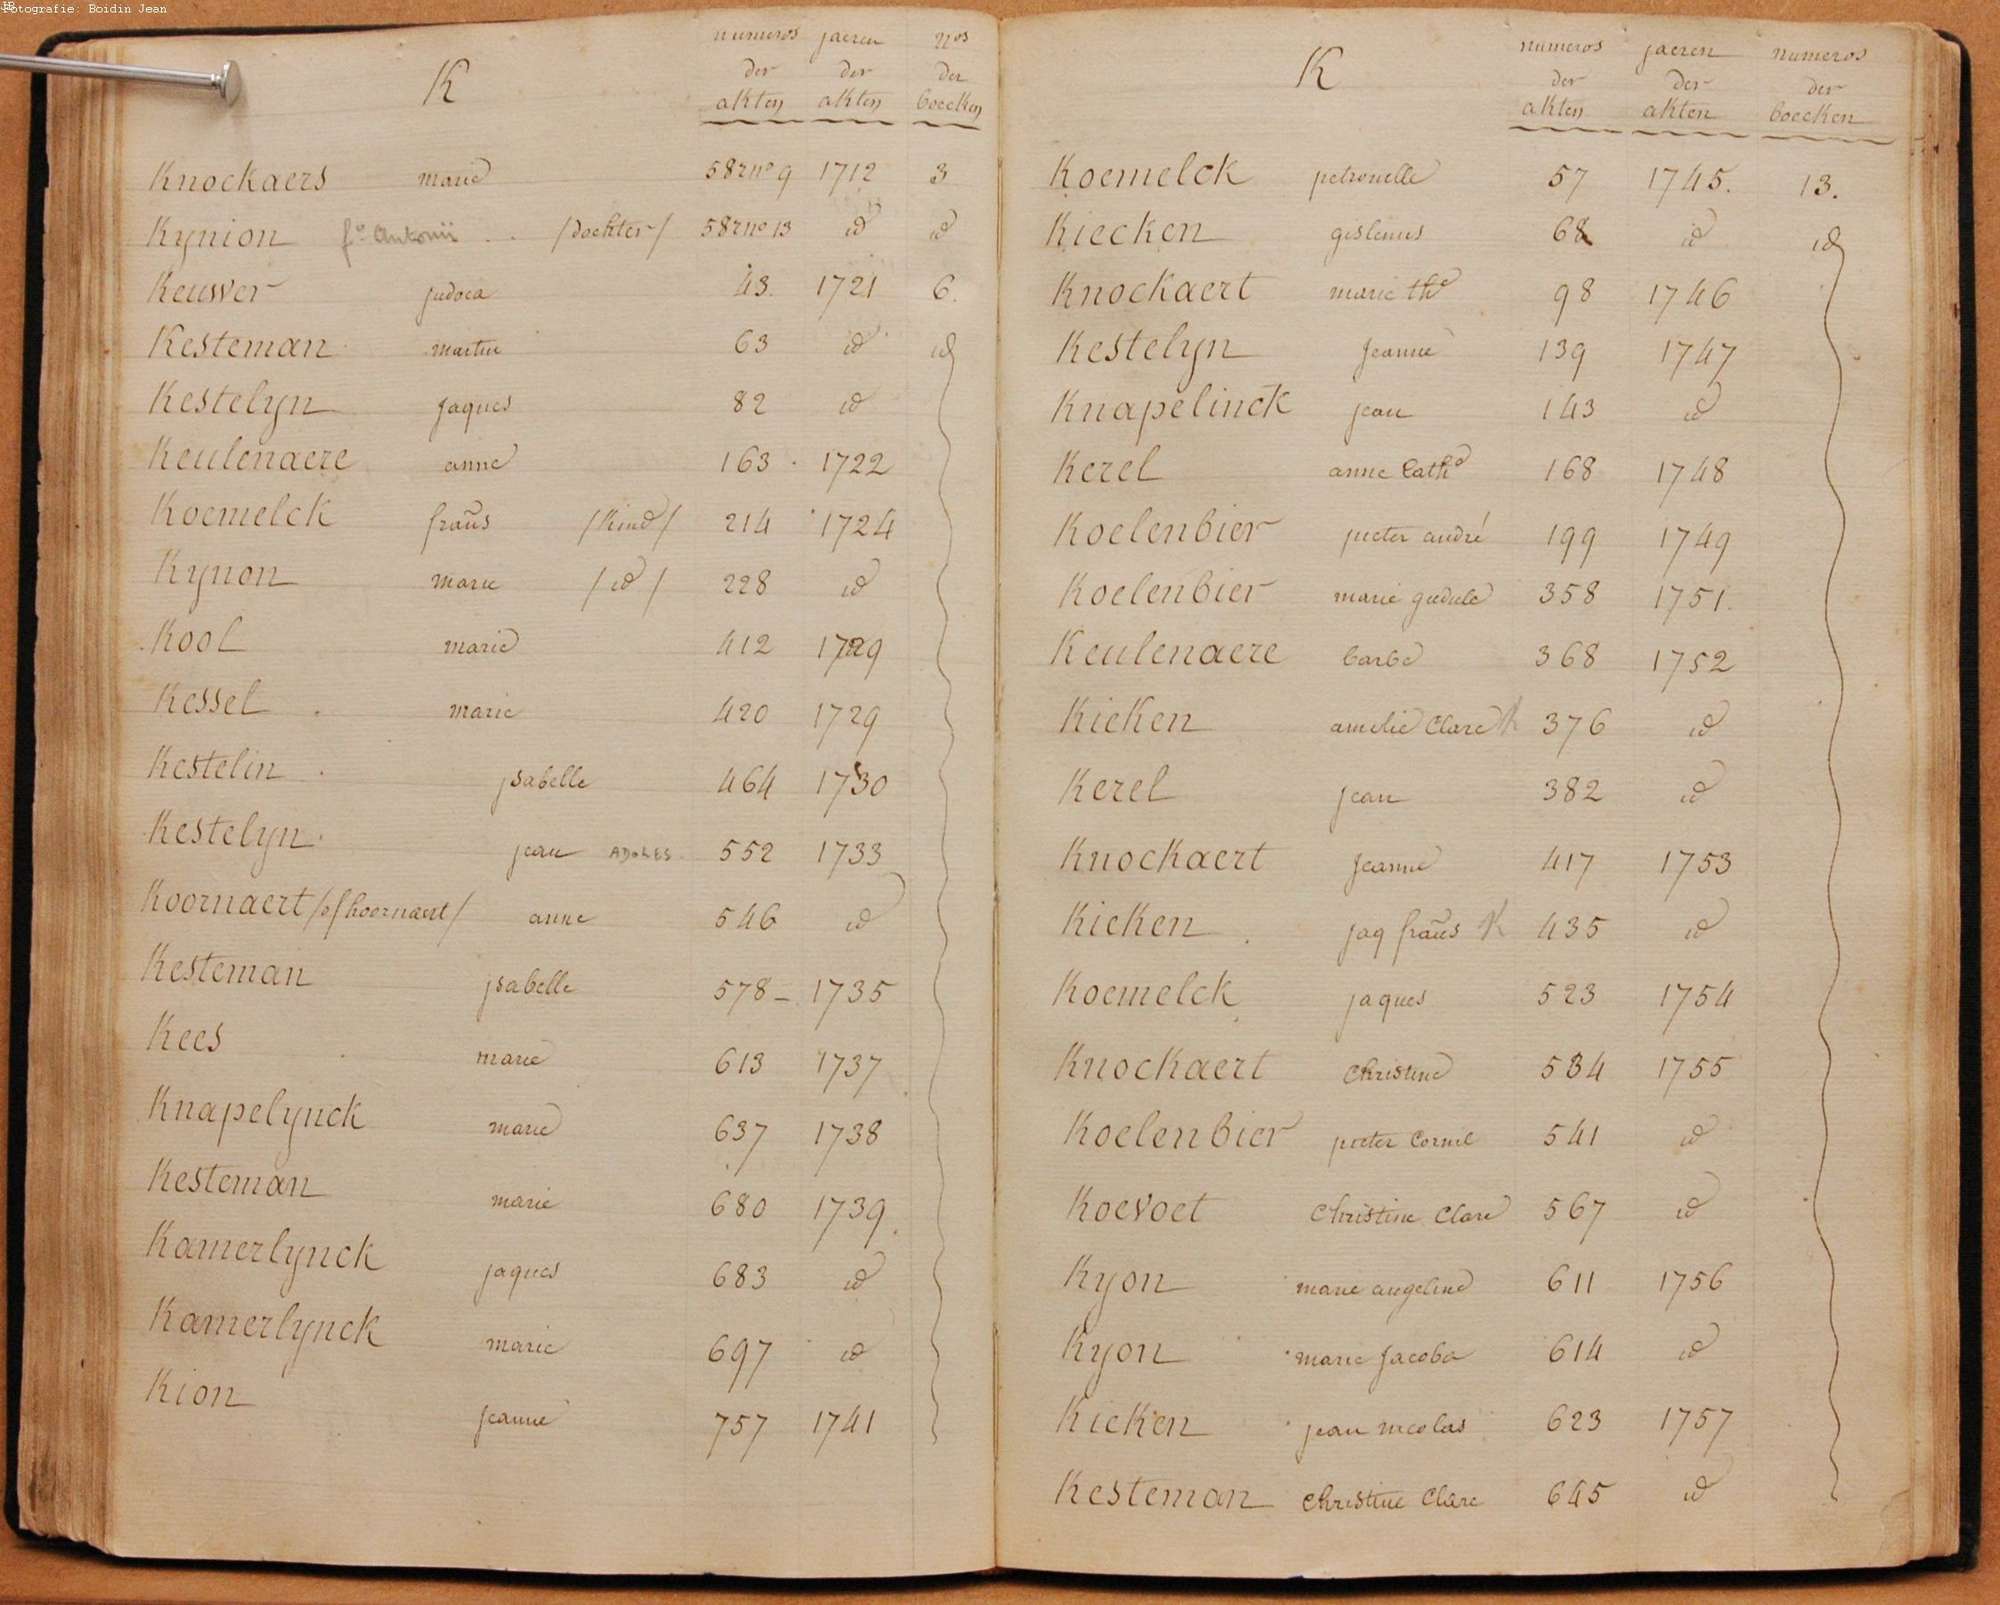 Fotografie: Boidin Jean
K
numeros jaeren nos
der der der
akten akten boecken
Knockaers marie 58z no 9 1712 3
Kynion fa Antonii /dochter/ 58z no 13 id id
Keuwer judoca 43. 1721 6.
Kesteman martin 63 id id
Kestelyn jaques 82 id
Keulenaere anne 163 1722
Koemelck frañs /kind/ 214 1724
Kynon marie /id/ 228 id
Kool marie 412 1729
Kessel marie 420 1729
Kestelin ysabelle 464 1730
Kestelyn jean ADOLES. 552 1733
Koornaert /of hoornaert/ anne 546 id
Kesteman ysabelle 578 1735
Kees marie 613 1737
Knapelynck marie 637 1738
Kesteman marie 680 1739
Kamerlynck jaques 683 id
Kamerlynck marie 697 id
Kion jeanne 757 1741
K
numeros jaeren numeros
der der der
akten akten boecken
Koemelck petronelle 57 1745. 13.
Kiecken gislenus 68 id id
Knockaert marie the 98 1746
Kestelyn jeanne 139 1747
Knapelinck jean 143 id
Kerel anne Cathe 168 1748
Koelenbier pieter andré 199 1749
Koelenbier marie gudule 358 1751.
Keulenaere barbe 368 1752
Kieken amelie Clare K 376 id
Kerel jean 382 id
Knockaert jeanne 417 1753
Kieken jaq frañs K 435 id
Koemelck jaques 523 1754
Knockaert Christine 534 1755
Koelenbier pieter Cornil 541 id
Koevoet Christine Clare 567 id
Kyon marie angeline 611 1756
Kyon marie Jacoba 614 id
Kieken jean nicolas 623 1757
Kesteman Christine Clare 645 id